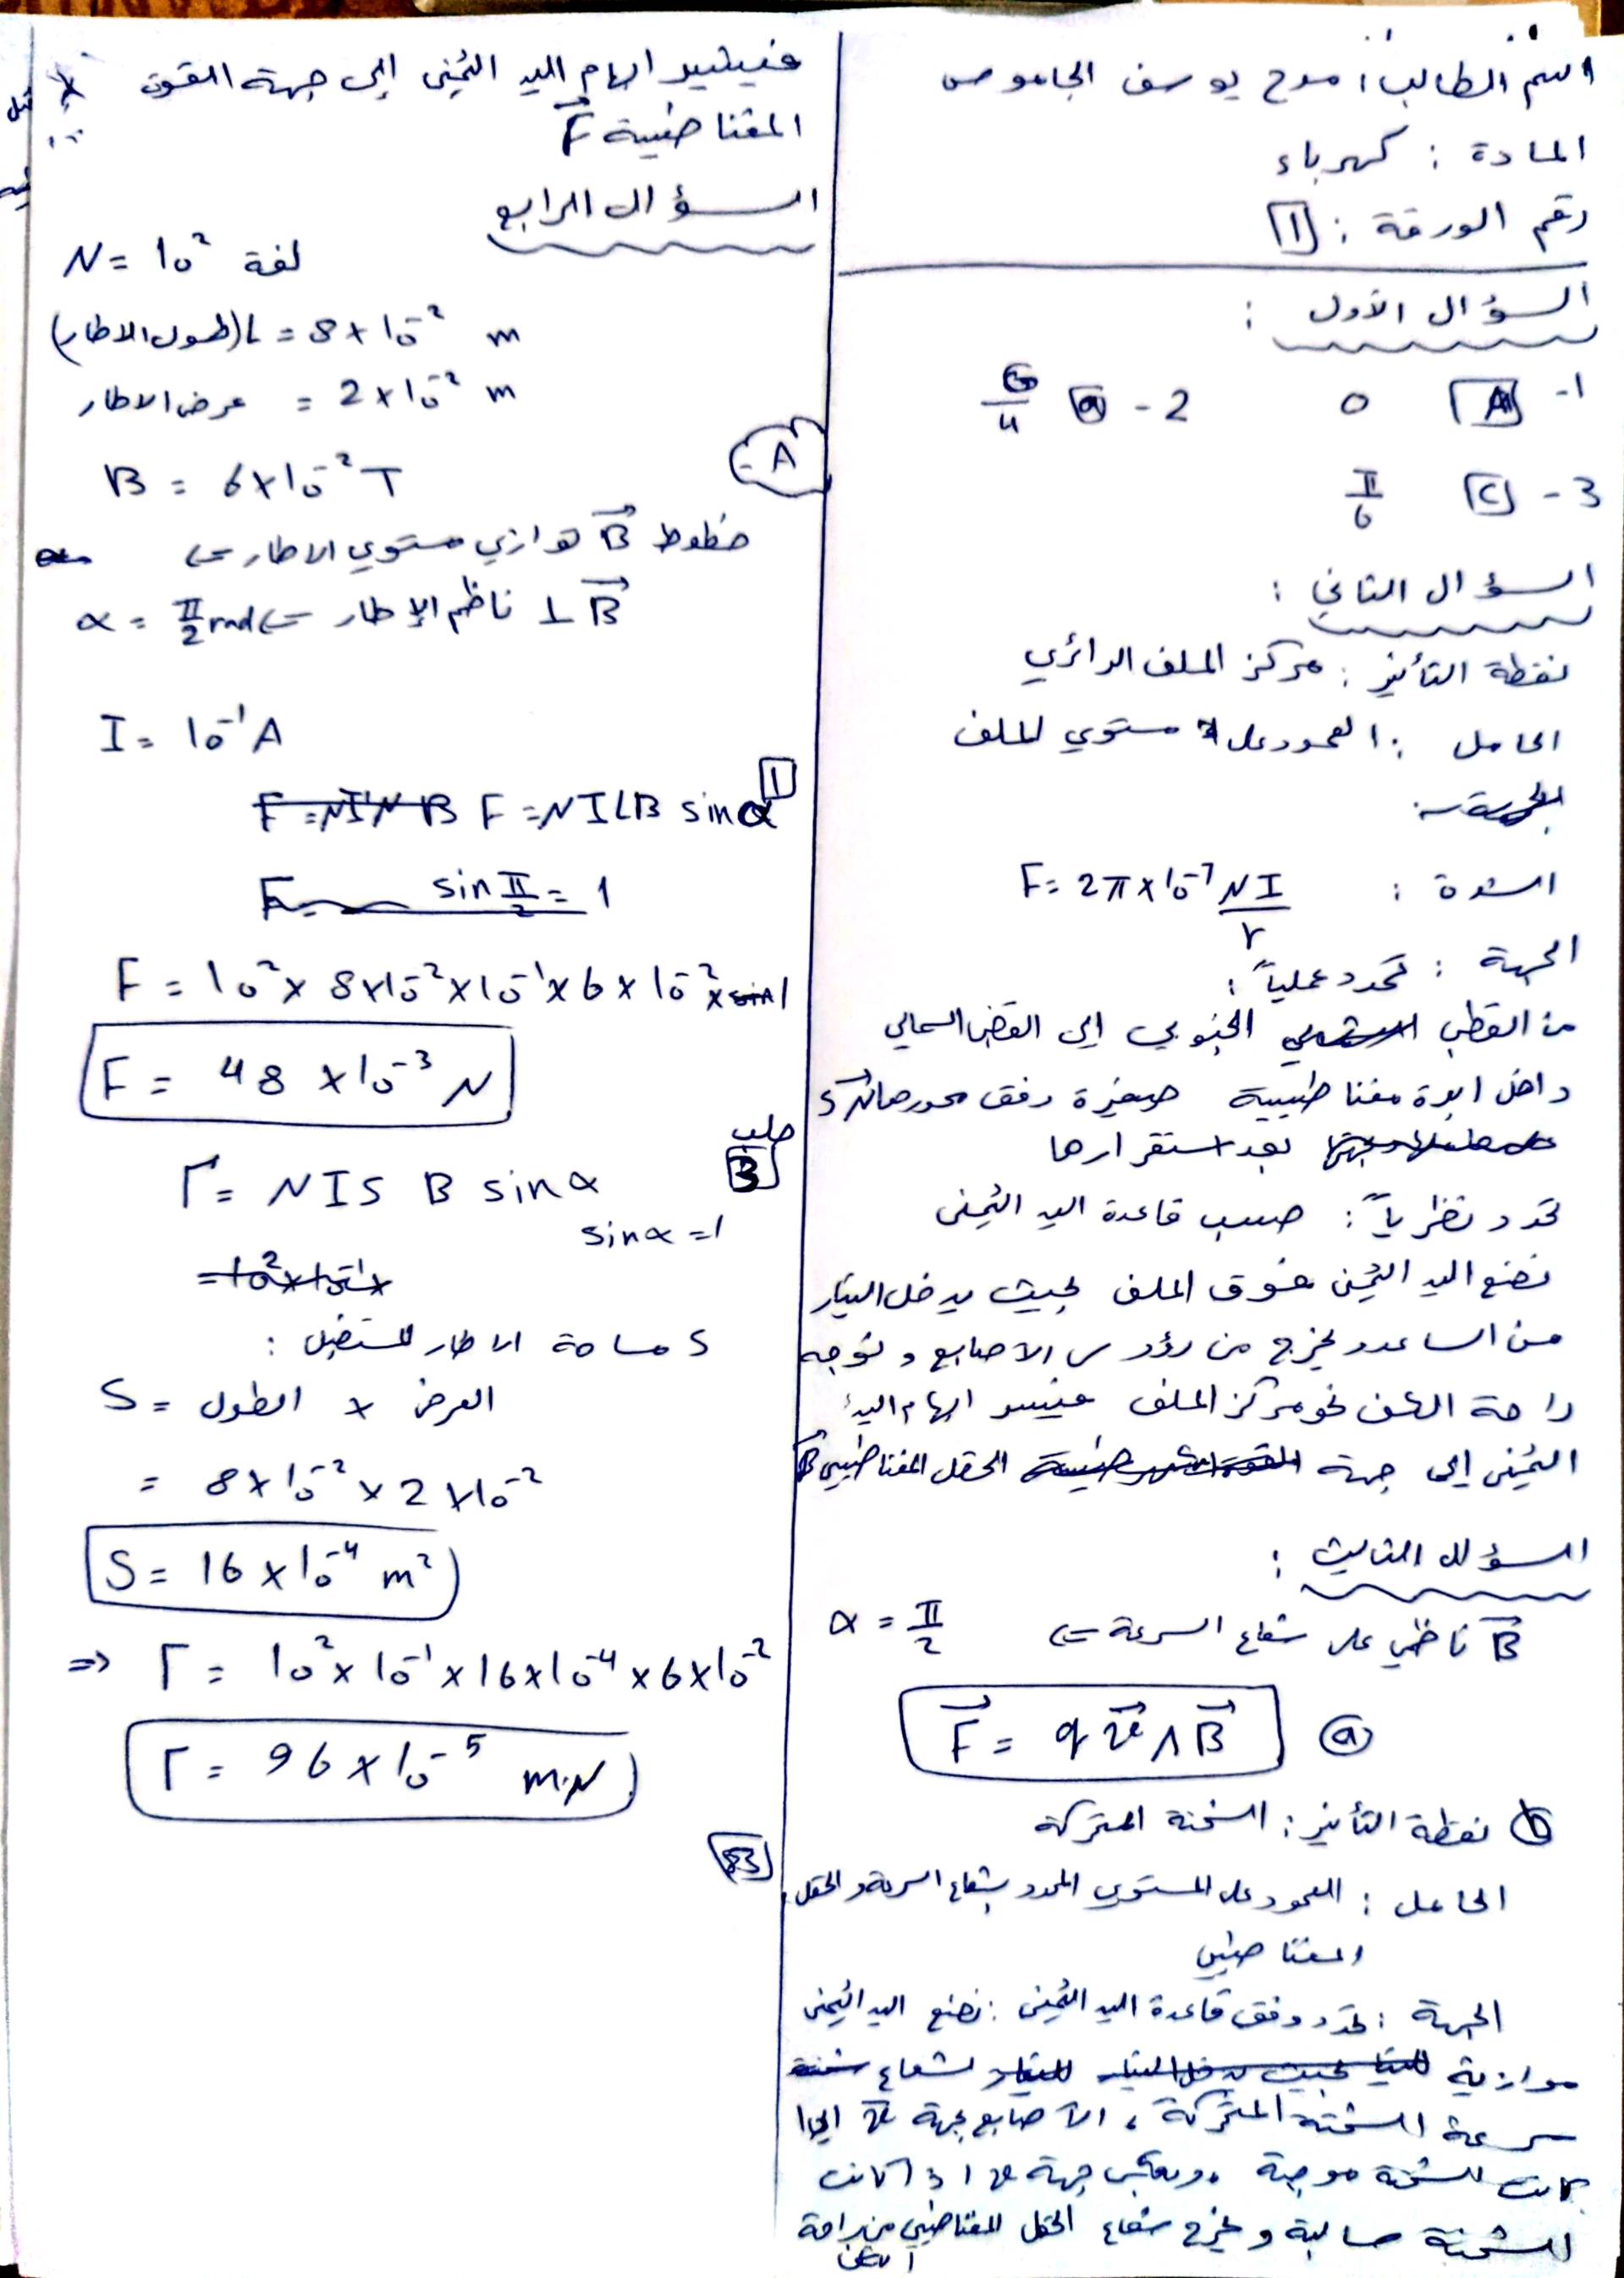 اسم الطالب: مدح يوسف الجاموس
المادة : كهرباء
رقم الورقة : 1
السؤال الأول :
1- A 0 2- a G/4
3- C π/6
السؤال الثاني :
نقطة التأثير : مركز الملف الدائري
الحامل : العمود على مستوي الملف
الشدة : F = 2π×10⁻⁷ NI/r
الجهة : تحدد عملياً :
من القطب الجنوبي إلى القطب الشمالي
داخل ابرة مغناطيسية صغيرة وفق محورها
بعد استقرارها
تحدد نظرياً : حسب قاعدة اليد اليمنى
نضع اليد اليمنى فوق الملف بحيث يدخل التيار
من الساعد ويخرج من رؤوس الاصابع ونوجه
راحة الكف نحو مركز الملف فيشير ابهام اليد
اليمنى إلى جهة الحقل المغناطيسي B
السؤال الثالث :
B ناظمي على شعاع السرعة ⇐ α = π/2
a F = q v ∧ B
b نقطة التأثير : الشحنة المتحركة
الحامل : العمود على المستوي المحدد بشعاع السرعة والحقل
المغناطيسي
الجهة : تحدد وفق قاعدة اليد اليمنى : نضع اليد اليمنى
موازية لشعاع
سرعة الشحنة المتحركة ، الأصابع بجهة v إذا
كانت الشحنة موجبة ، وبعكس جهة v اذا كانت
الشحنة سالبة ويخرج شعاع الحقل المغناطيسي من راحة
الكف
فيشير ابهام اليد اليمنى إلى جهة القوة
المغناطيسية F
السؤال الرابع
N = 10² لفة
(طول الاطار) L = 8×10⁻² m
عرض الاطار = 2×10⁻² m
B = 6×10⁻² T
A -
خطوط B توازي مستوي الاطار ⇐
B ⊥ ناظم الإطار ⇐ α = π/2 rad
I = 10⁻¹ A
1
F = NILB sinα
sin π/2 = 1
F = 10² × 8×10⁻² × 10⁻¹ × 6×10⁻² × 1
F = 48 × 10⁻³ N
طلب
3
Γ = NIS B sinα
sinα = 1
S مساحة الاطار المستطيل :
S = الطول × العرض
= 8×10⁻² × 2×10⁻²
S = 16×10⁻⁴ m²
⇒ Γ = 10² × 10⁻¹ × 16×10⁻⁴ × 6×10⁻²
Γ = 96 × 10⁻⁵ m.N